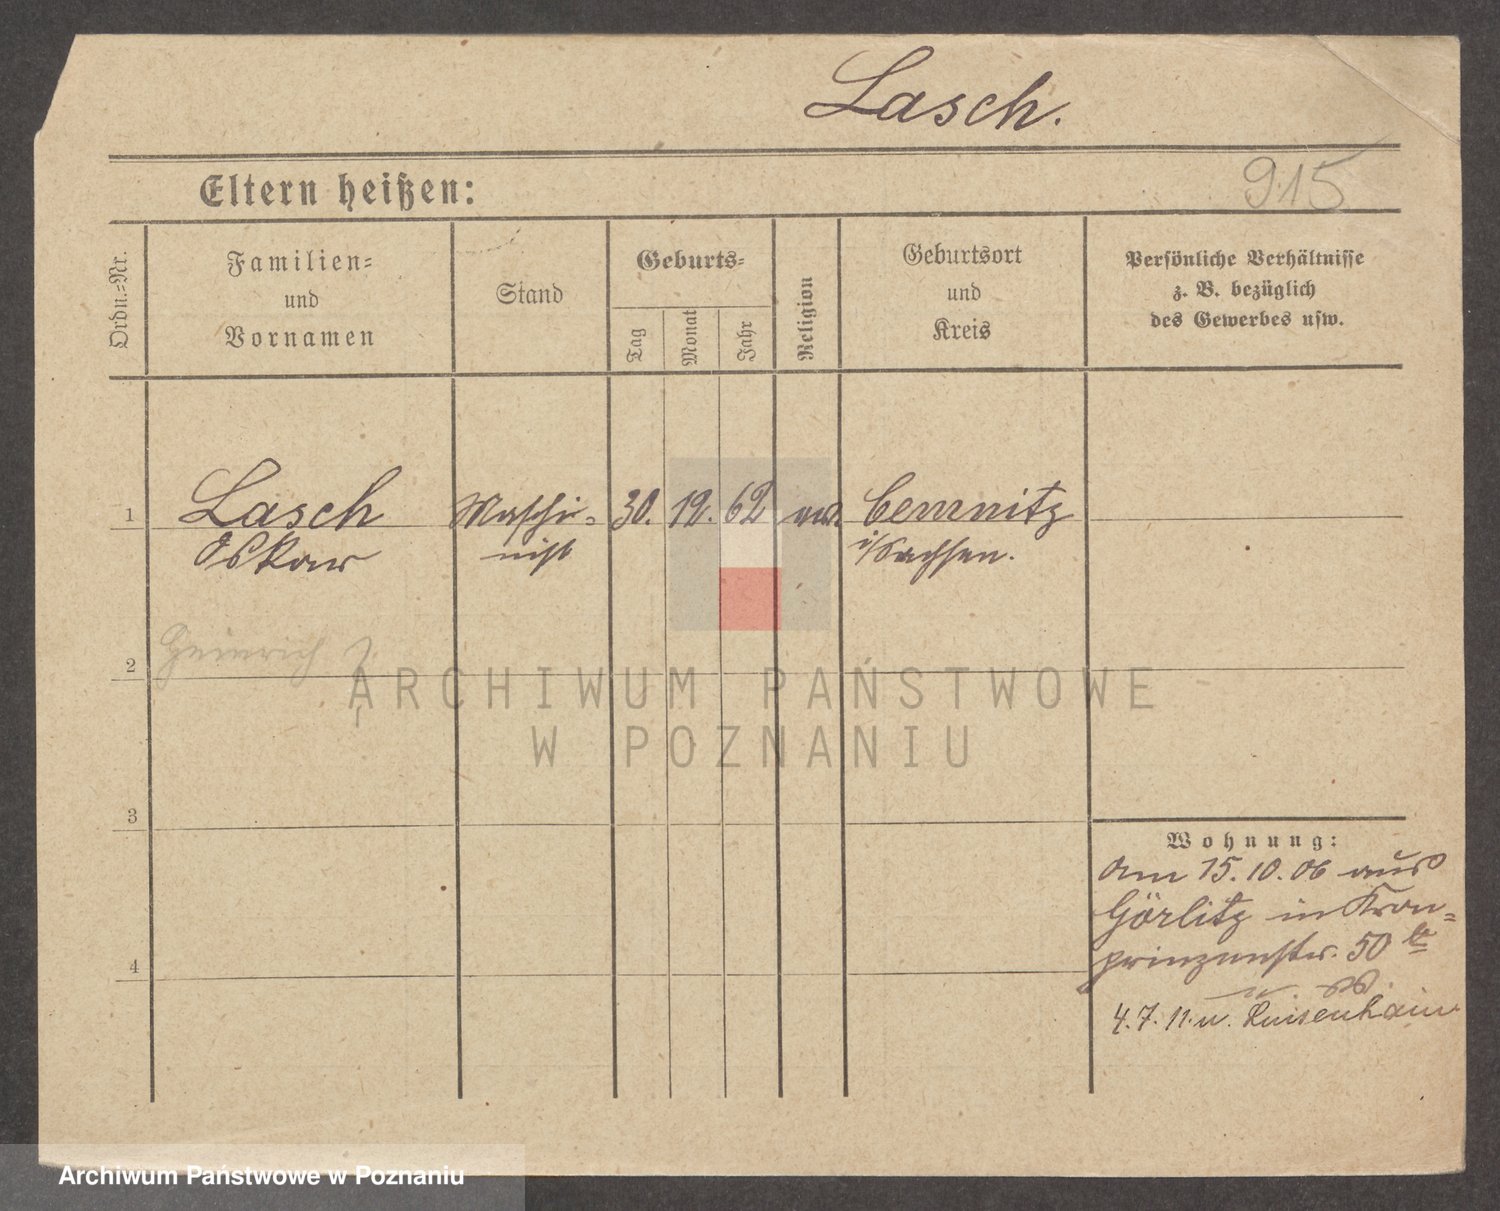 Lasch.
Eltern heißen:
915
Ordn.-Nr.
Familien-
und
Vornamen
Stand
Geburts-
Tag
Monat
Jahr
Religion
Geburtsort
und
Kreis
Persönliche Verhältnisse
z. B. bezüglich
des Gewerbes usw.
1
Lasch
Oskar
Maschi-
nist
30. 12. 62
Cemnitz
i/Sachsen.
2
Heinrich
ARCHIWUM PAŃSTWOWE
W POZNANIU
3
4
Wohnung:
Am 15. 10. 06 aus
Görlitz in Kron-
prinzenstr. 50
4. 7. 11. n. Luisenhain
Archiwum Państwowe w Poznaniu